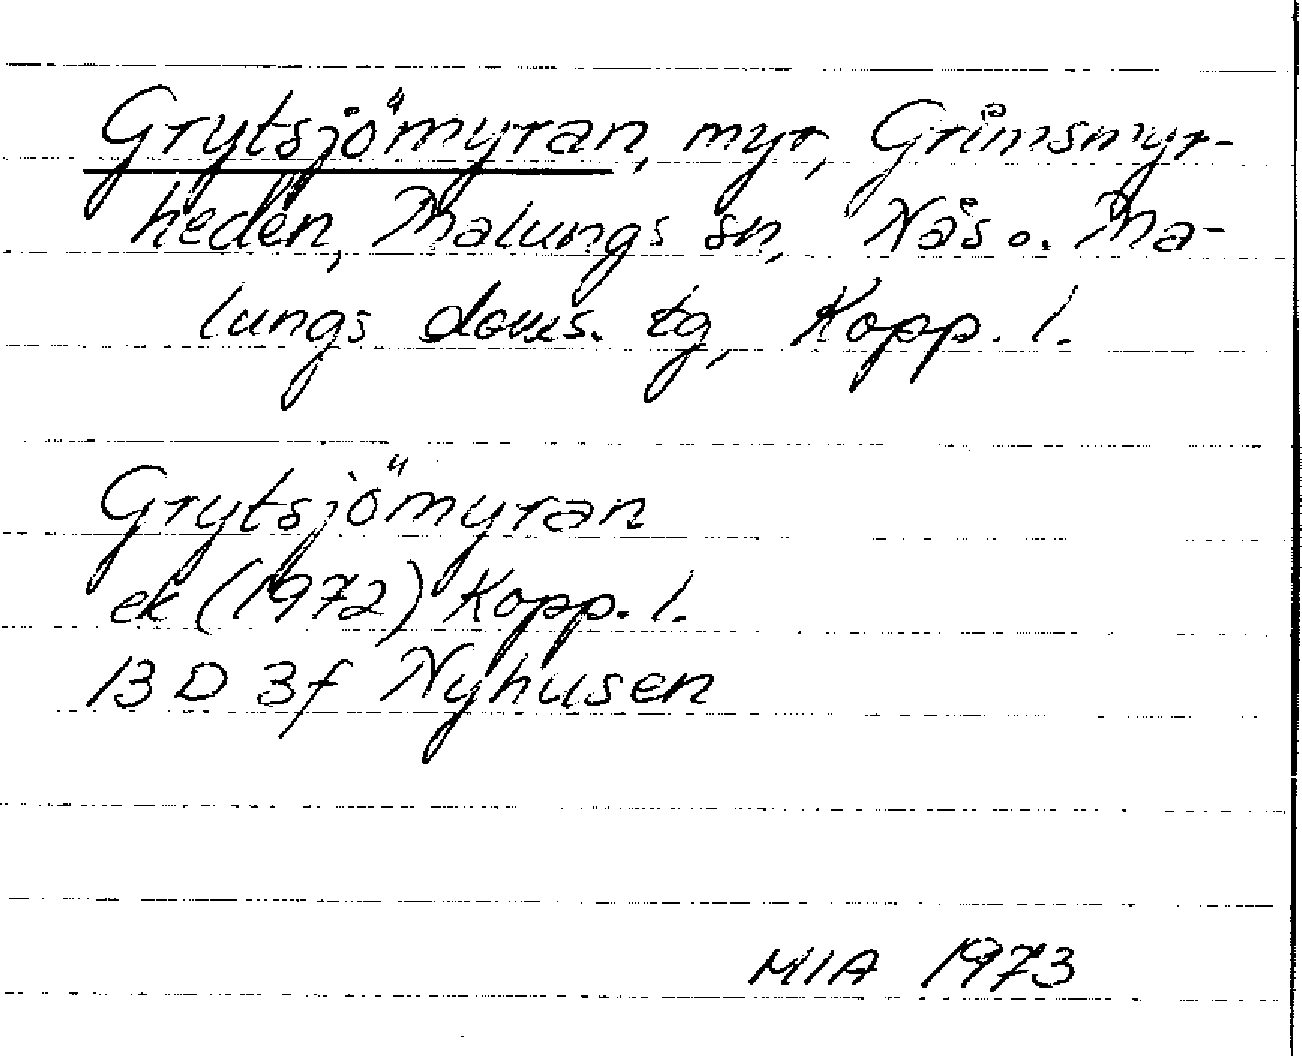 Grytsjömyran, myr, Grimsmyr-
heden, Malungs sn, Nås o. Ma-
lungs doms. tg, Kopp. l.
Grytsjömyran
ek (1972) Kopp. l.
13 D 3f Nyhusen
MIA 1973